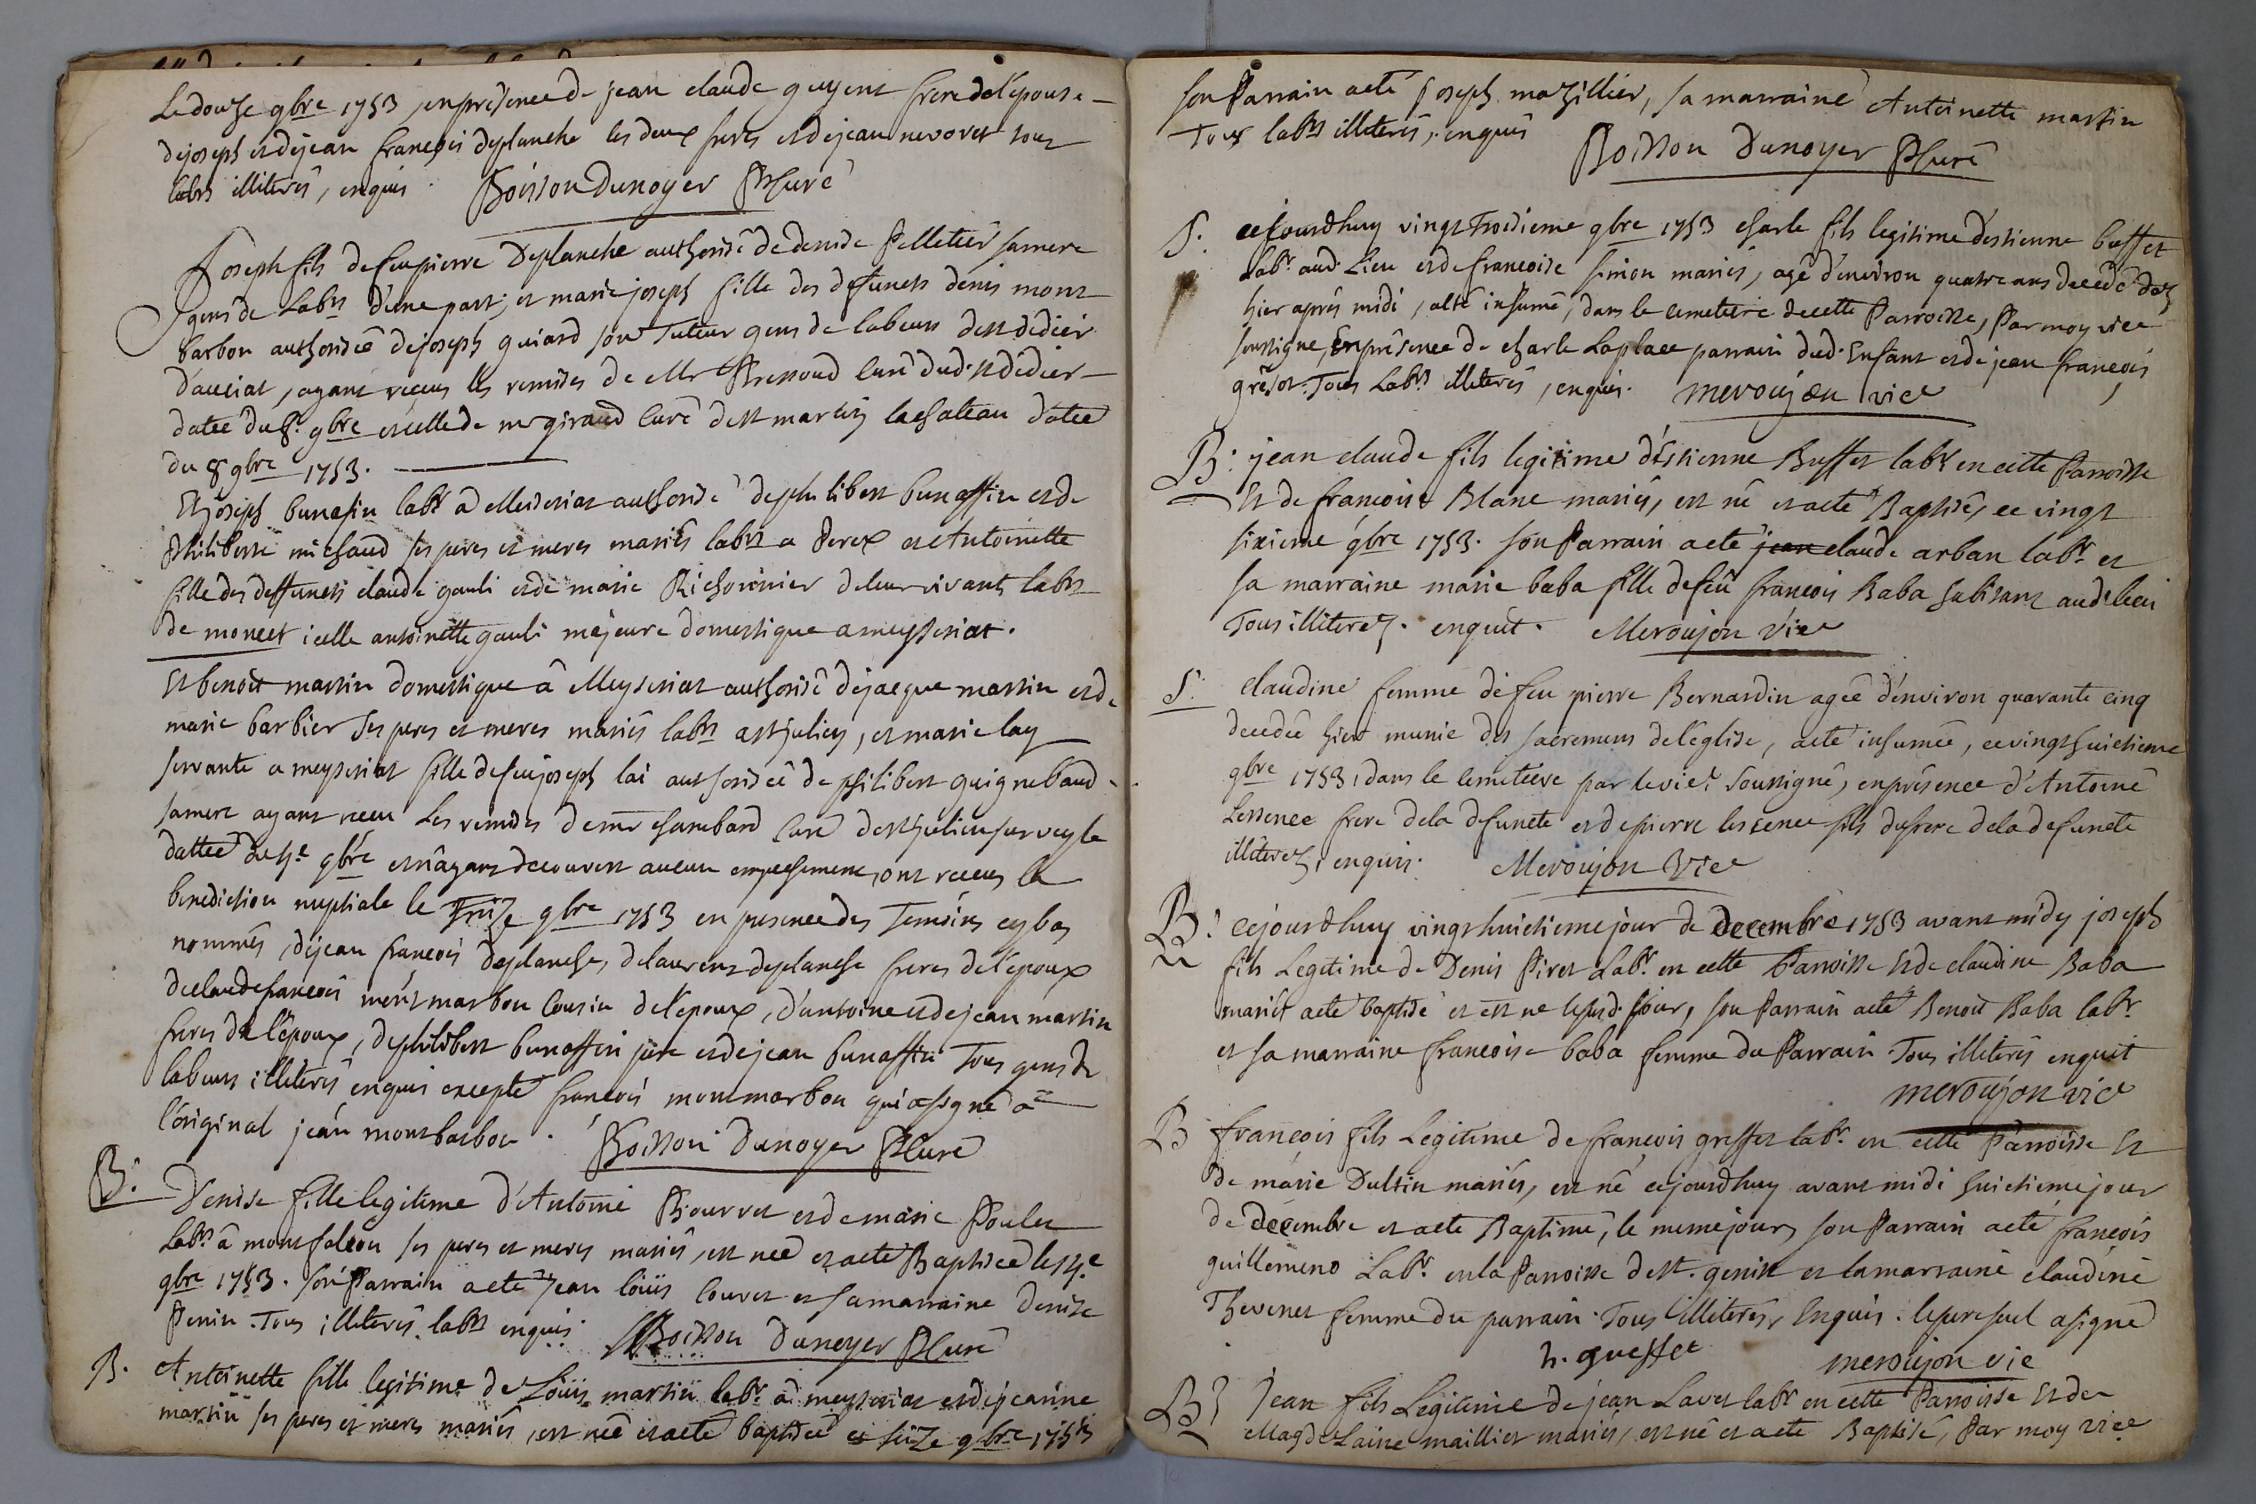 Le douze 9bre 1753, en presence de jean claude guyent frere de l'epouse
de joseph et de jean francois deplanche les deux freres et de jean nevoret tous
labrs illiterés, enquis. Boisson Dunoyer Pbre curé
Joseph fils de feu pierre Deplanche authorisé de denise Pelletier sa mere
gens de Labrs d'une part; et marie joseph fille des defunets denis mont
barbon authorisée de joseph guiard son Tuteur gens de labeurs de st didier
d'aussiat, ayant receus les remises de Mr Bressoud Curé dud. st didier
datée du 8e. 9bre et celle de mr giraud Curé de st martin le chateau datée
du 8 9bre 1753.
Et joseph bunafin labr a Meiseriat authorisé de philibert bunaffin et de
Philiberte michaud ses peres et meres mariés labrs a Perex et Antoinette
fille des deffunets claude gauli et de marie Richonnier de leur vivant labrs
de moncet icelle antoinette gauli majeure domestique a meyseriat.
Et benoit martin domestique â Meyseriat authorisé de jacque martin et de
marie barbier ses peres et meres mariés labrs a st julien, et marie lay
servante a meyseriat fille de feu joseph lai authorisée de philiberte guignebaud
sa mere ayant receu Les remises de mr chambard Curé de st julien sur veyle
dattée du 5e 9bre et n'ayant decouvert aucun empechement, ont receus la
benediction nuptiale le Treize 9bre 1753 en presence des Temoins cy bas
nommés, de jean francois deplanche, de laurent deplanche freres de l'epoux
de claude francois montmarbon Cousin de l'epoux, d'antoine et de jean martin
freres de l'epoux, de philibert bunaffin pere et de jean bunaffin Tous gens de
labeurs illiterés enquis excepté francois montmarbon qui a signé a
l'original jean montbarbon. Boisson Dunoyer Pbre curé
B. Denise fille legitime d'Antoine Bouvret et de marie Poulet
Labrs â montfalcon ses peres et meres mariés, est nee et a eté Baptisée le 14e
9bre 1753. son Parrain a eté jean loüis Couvet et sa marraine Denise
Penin. Tous illiterés labrs enquis. Boisson Dunoyer Pbre curé
B. Antoinette fille legitime de Loüis martin labr. â meyseriat et de jeanne
martin ses peres et meres mariés, est neé et a eté baptiseé ce seize 9bre 1753
son Parrain a eté joseph mazillier, sa marraine Antoinette martin
Tous labrs illiterés, enquis Boisson Dunoyer Pbre curé
S. cejourdhuy vingt Troisieme 9bre 1753 charle fils legitime d'estienne buffet
Labr. aud. Lieu et de francoise simon mariés, agé d'environ quatre ans decedé dez
hier aprés midi, a eté inhumé, dans le cemetiere de cette Parroisse, Par moy vice
soussigné, En présence de charle Laplace parrain dud. Enfant et de jean francois
gréfor. Tous Labrs illiterés, enquis. meroujon vice
B. jean claude fils legitime d'Estienne Buffet labr. en cette Parroisse
Et de francoise Blanc mariés, est né et a eté Baptisé, ce vingt
sixieme 9bre 1753. son Parrain a eté jean claude arban labr. et
sa marraine marie baba fille de feu francois Baba habitant aud. lieu
Tous illiterez. enquit. Meroujon vice
S. claudine femme de feu pierre Bernardin ageé d'environ quarante cinq
decedée hier munie des sacremens de l'eglise, a eté inhumée, ce vingt huictieme
9bre 1753, dans le cemetiere par le vice soussigné, en présence d'Antoine
Lessence frere de la defuncte et de pierre lessence fils du frere de la defuncte
illiterez, enquis. Meroujon Vice
B. cejourdhuy vingt huictieme jour de decembre 1753 avant midy joseph
fils Legitime de Denis Piret Labr. en cette Parroisse Et de claudine Baba
mariés a eté baptisé et est né lesusd. jour, son Parrain a eté Benoit Baba labr.
et sa marraine francoise baba femme du Parrain Tous illiterés enquit
meroujon vice
B francois fils Legitime de francois greffet labr. en cette Parroisse Et
de marie Dultin mariés, est né cejourdhuy avant midi huictieme jour
de decembre et a eté Baptimé, le meme jour, son Parrain a eté francois
guillemino Labr. en la Parroisse de st. genist et la marraine claudine
Thevenet femme du parrain. Tous illiterés, Enquis. le pere seul a signé
h. gueffet meroujon vice
B Jean fils Legitime de jean Lavet labr en cette Parroisse Et de
Magdelaine maillier mariés, est né et a eté Baptisé, Par moy vice